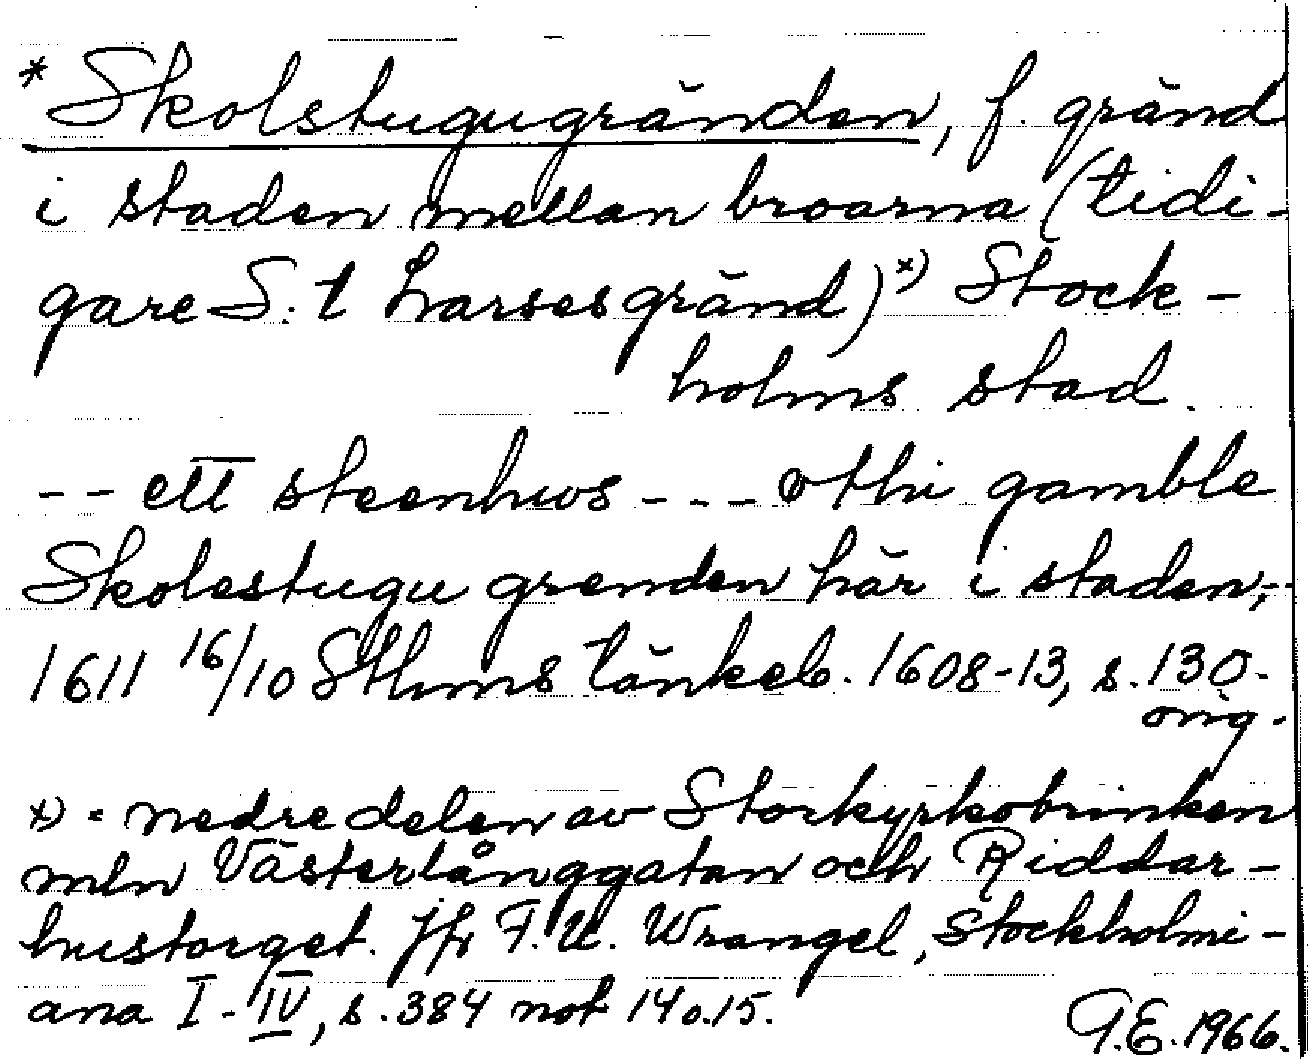 *Skolstugugränden, f. gränd
i staden mellan broarna (tidi-
gare S:t Larses gränd)*) Stock-
holms stad.
-- ett steenhws --- vthi gamble
Skolestugu grenden här i staden,-
1611 16/10 Sthms tänkeb. 1608-13, s. 130.
orig.
x) = nedre delen av Storkyrkobrinken
mln Västerlånggatan och Riddar-
hustorget. Jfr F.U. Wrangel, Stockholmi-
ana I-IV, s. 384 not 14 o. 15.
G.E. 1966.